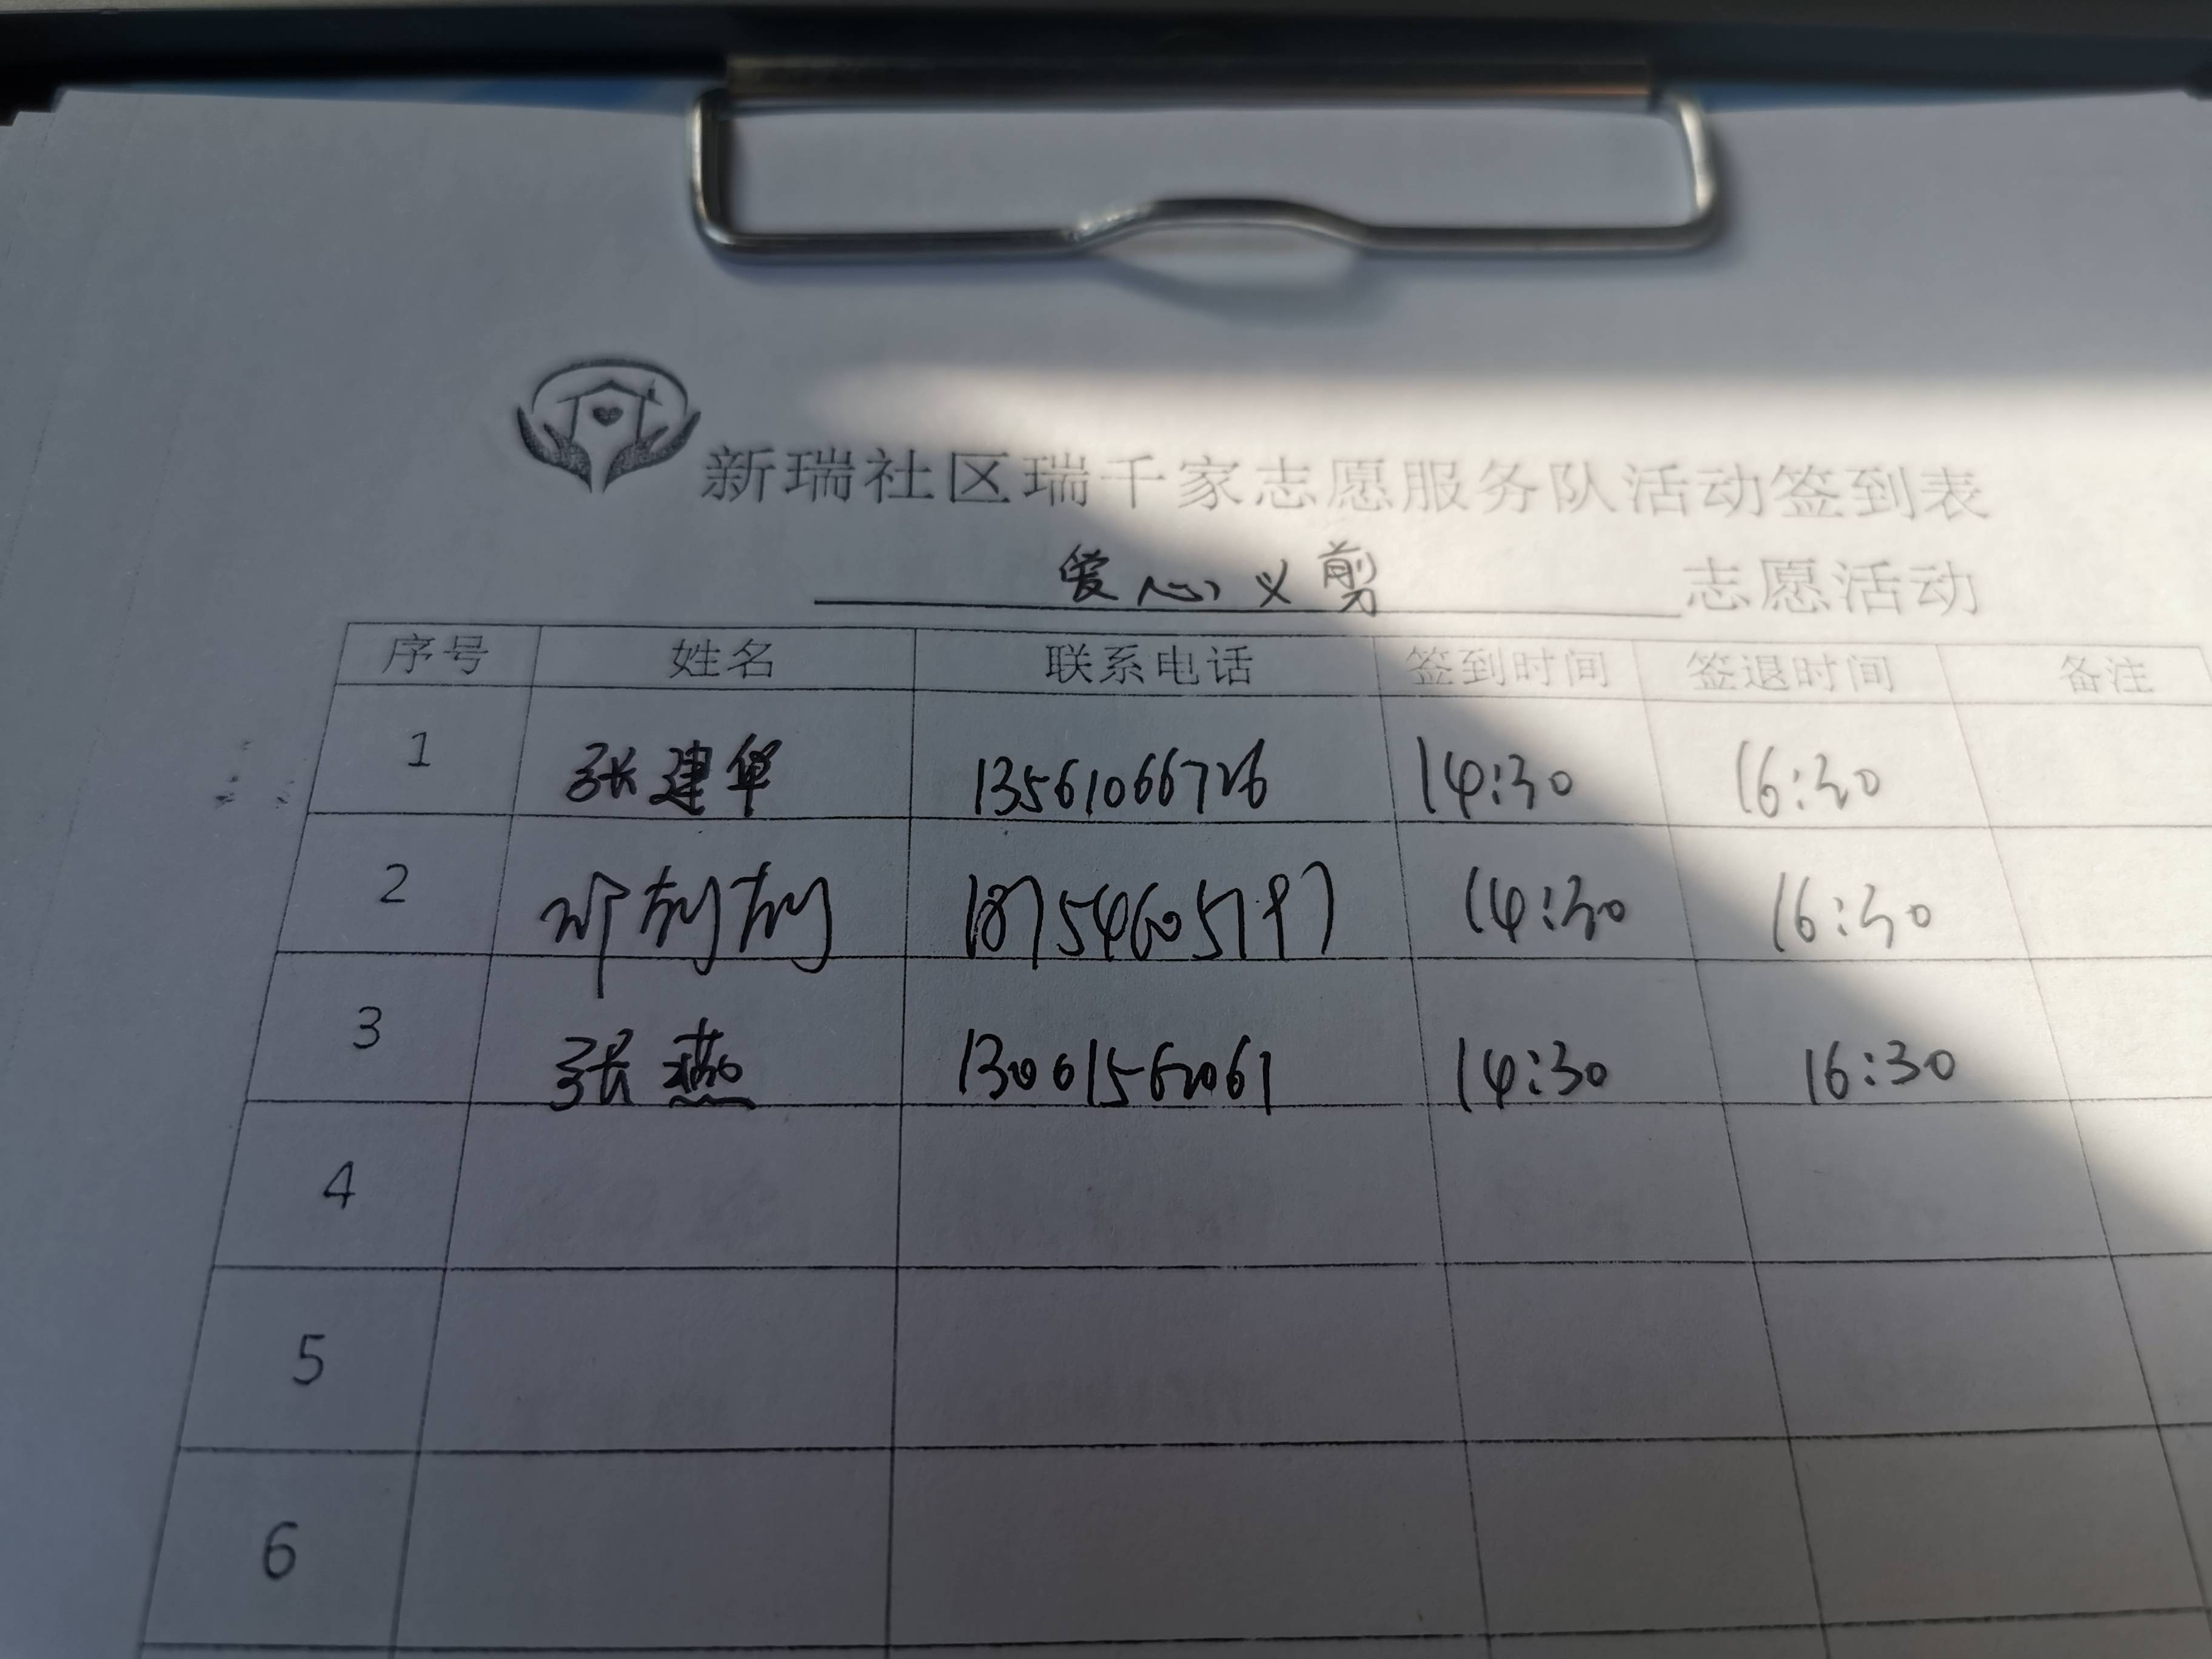 新瑞社区瑞千家志愿服务队活动签到表
爱心义剪 志愿活动
序号 姓名 联系电话 签到时间 签退时间 备注
1 张建华 13561066726 14:30 16:30
2 邓 18754605797 14:30 16:30
3 张燕 13061562061 14:30 16:30
4
5
6